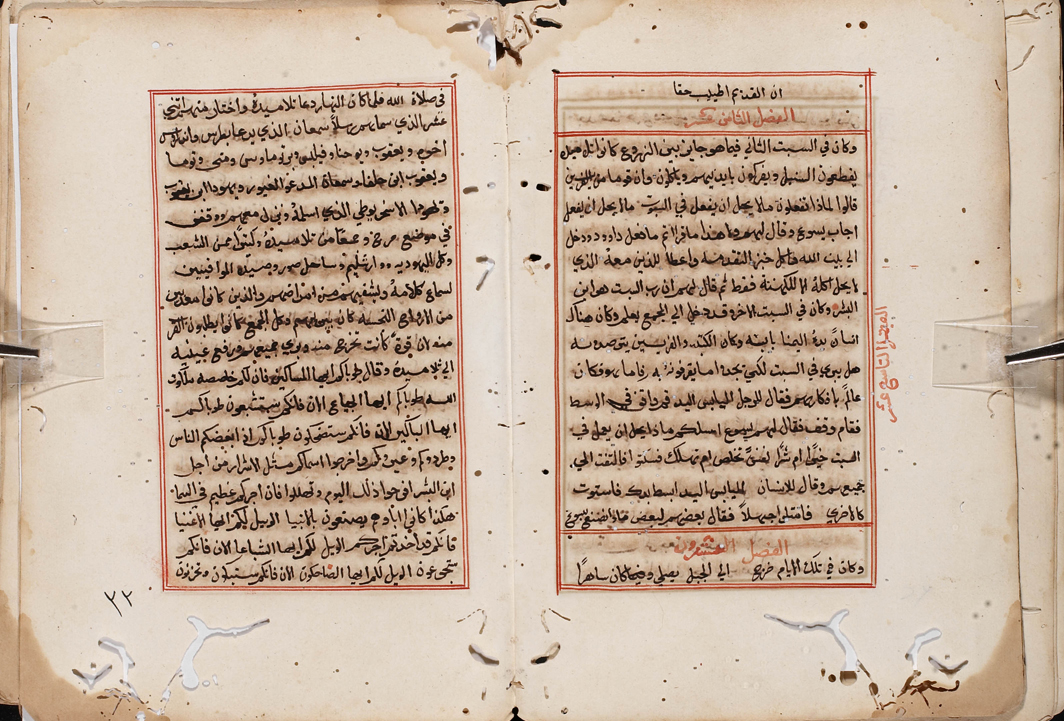 ان القديم اطيب حقا
الفصل الثامن عشر
وكان في السبت الثاني فيما هو جايز بين الزروع كانوا تلاميذه
يقطعون السنبل ويفركون بايديهم وياكلون وان قوما من الفريسيين
قالوا لماذا تفعلون ما لا يحل ان يفعل في السبوت
اجاب يسوع وقال لهم ولا هذا ما قراتم ما فعل داوود دخل
الي بيت الله واكل خبز التقدمه واعطا للذين معه الذي
لا يحل اكله الا للكهنة فقط ثم قال لهم ان رب السبت هو ابن
البشر وكان في السبت الاخر قد دخل الي المجمع يعلم وكان هناك
انسان يده اليمنا يابسه وكان الكتبه والفريسيين يترصدونه
هل يبري في السبت لكي يجدوا ما يقرفونه به فاما هو فكان
عالم بافكارهم فقال للرجل اليابس اليد قم واقف في الوسط
فقام ووقف فقال لهم يسوع اسلكم ماذا يحل ان يعمل في
السبت خيرًا ام شرًا نفسً تخلص ام تهلك فسكتوا فالتفت الي
جميعهم وقال للانسان اليابس اليد ابسط يدك فاستوت
كالاخري فامتلوا جهلاً فقال بعضهم لبعض ماذا نصنع بيسوع
الفصل العشرون
وكان في تلك الايام خرج الي الجبل يصلي وفيما كان ساهرًا
الفصل التاسع عشر
في صلاة الله فلما كان النهار دعا تلاميذه واختار منهم اثني
عشر الذي سماهم رسلاً سمعان الذي يدعا بطرس واندراوس
اخوه ويعقوب ويوحنا وفيلبس وبرتوماوس ومتي وتوما
ويعقوب ابن حلفا وسمعان المدعو الغيور ويهودا ابن يعقوب
ويهودا الاسخريوطي الذي اسلمه ونزل معهم ووقف
في موضع مرج وجمعًا من تلاميذه وكثيرًا من الشعب
وكل اليهوديه واورشليم وساحل صور وصيدا الموافيين
لسماع كلامه وليشفيهم من امراضهم والذين كانوا معذبين
من الارواح النجسه كان يبريهم وكل الجمع كانوا يطلبون القرب
منه لان قوة كانت تخرج منه وتبري جميعهم ورفع عينيه
الي تلاميذه وقال طوباكم ايها المساكين فان لكم خاصه ملكوت
الله طوباكم ايها الجياع الان فانكم ستشبعون طوباكم
ايها الباكين الان فانكم ستضحكون طوباكم اذا ابغضكم الناس
وطردوكم وعيروكم واخرجوا اسماكم مثل الاشرار من اجل
ابن البشر افرحوا ذلك اليوم وتهللوا فان اجركم عظيم في السما
هكذا كانوا اباوهم يصنعون بالانبيا الويل لكم ايها الاغنيا
فانكم قد اخذتم اجركم الويل لكم ايها الشباعا الان فانكم
ستجوعون الويل لكم ايها الضاحكون الان فانكم ستبكون وتحزنون
٢٢